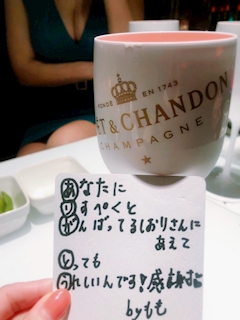 FONDÉ EN 1743
ET & CHANDON
CHAMPAGNE
あなたに
りすぺくと
がんばってるしおりさんに
あえて
とっても
うれしいんです!感謝
byもも